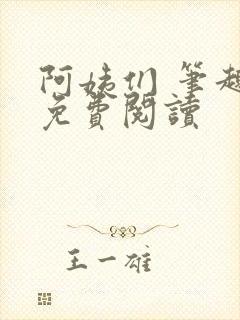 阿姨们 筆趣
免費閱讀
王一雄